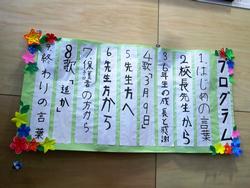 プログラム
1.はじめの言葉
2校長先生から
3.6年生の成長と感謝
4歌「3月9日」
5先生方へ
6先生方から
7保護者の方から
8歌「遥か」
9終わりの言葉